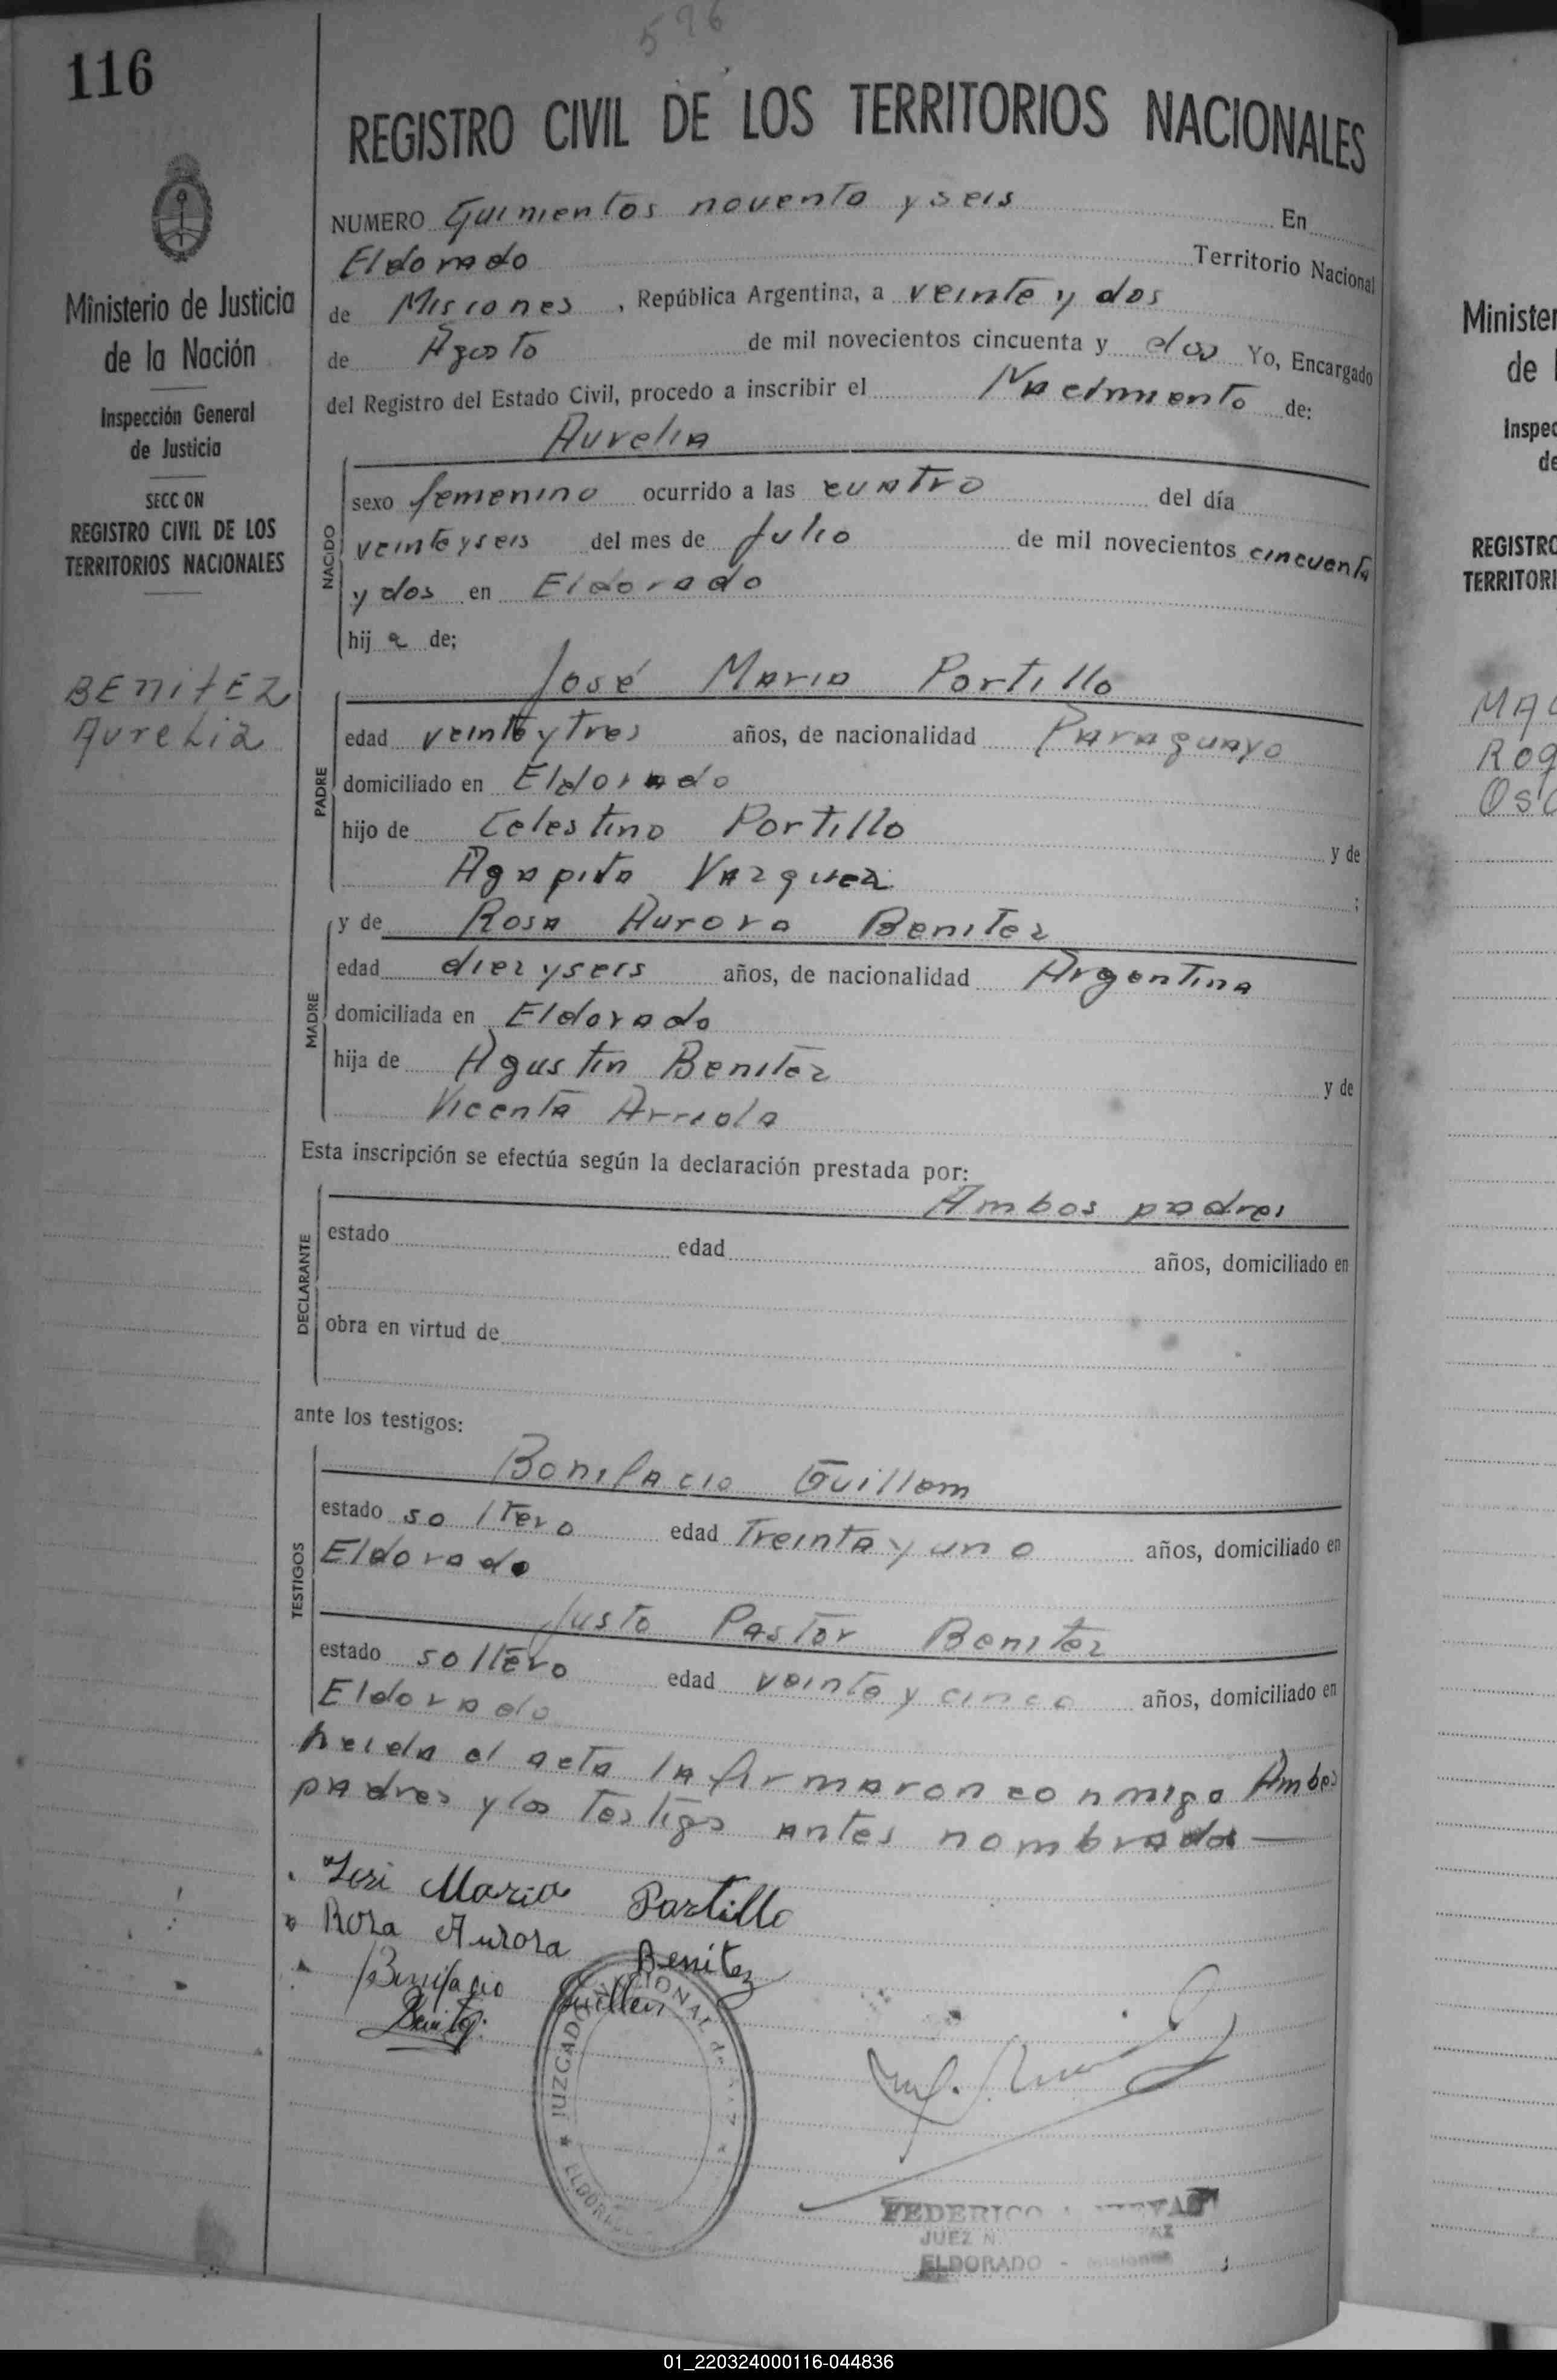 596
116
REGISTRO CIVIL DE LOS TERRITORIOS NACIONALES
Ministerio de Justicia
de la Nación
Inspección General
de Justicia
SECC ON
REGISTRO CIVIL DE LOS
TERRITORIOS NACIONALES
BENITEZ
Aurelia
NUMERO Quinientos noventa y seis En
Eldorado Territorio Nacional
de Misiones, República Argentina, a veinte y dos
de Agosto de mil novecientos cincuenta y dos Yo, Encargado
del Registro del Estado Civil, procedo a inscribir el Nacimiento de:
Aurelia
NACIDO
sexo femenino ocurrido a las cuatro del día
veinte y seis del mes de Julio de mil novecientos cincuenta
y dos en Eldorado
hij a de;
José Maria Portillo
PADRE
edad veinte y tres años, de nacionalidad Paraguayo
domiciliado en Eldorado
hijo de Celestino Portillo y de
Agapita Vazquez ;
y de Rosa Aurora Benitez
MADRE
edad diez y seis años, de nacionalidad Argentina
domiciliada en Eldorado
hija de Agustin Benitez y de
Vicenta Arriola
Esta inscripción se efectúa según la declaración prestada por:
Ambos padres
DECLARANTE
estado edad años, domiciliado en
obra en virtud de
ante los testigos:
Bonifacio Guillem
TESTIGOS
estado soltero edad Treinta y uno años, domiciliado en
Eldorado
Justo Pastor Benitez
estado soltero edad veinte y cinco años, domiciliado en
Eldorado
heida el acta la firmaron conmigo Ambos
padres y los testigo antes nombrados
José Maria Portillo
Rosa Aurora Benitez
Bonifacio Guillen
Benitez
JUZGADO NACIONAL de PAZ
ELDORADO
FEDERICO
JUEZ N. PAZ
ELDORADO - Misiones
Minister
de
Inspec
de
REGISTRO
TERRITORI
MAC
ROQ
OSC
01_220324000116-044836